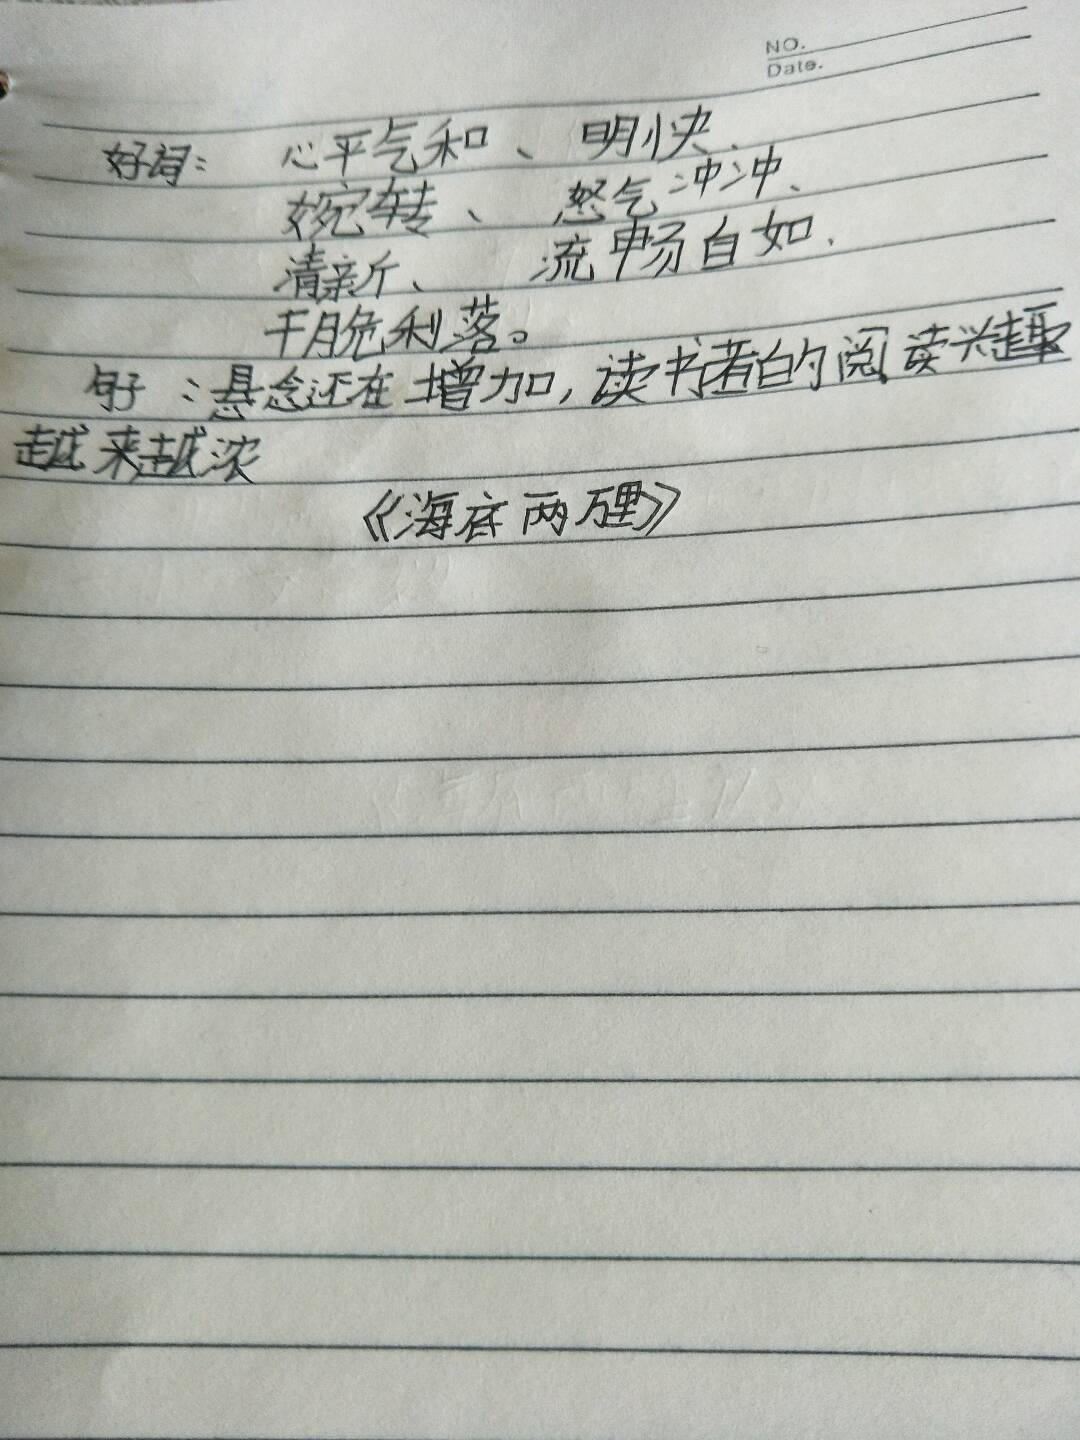 NO.
Date.
好词： 心平气和、 明快、
婉转、 怒气冲冲、
清新、 流畅自如、
干脆利落。
句子：悬念还在增加，读书者的阅读兴趣
越来越浓
《海底两万里》